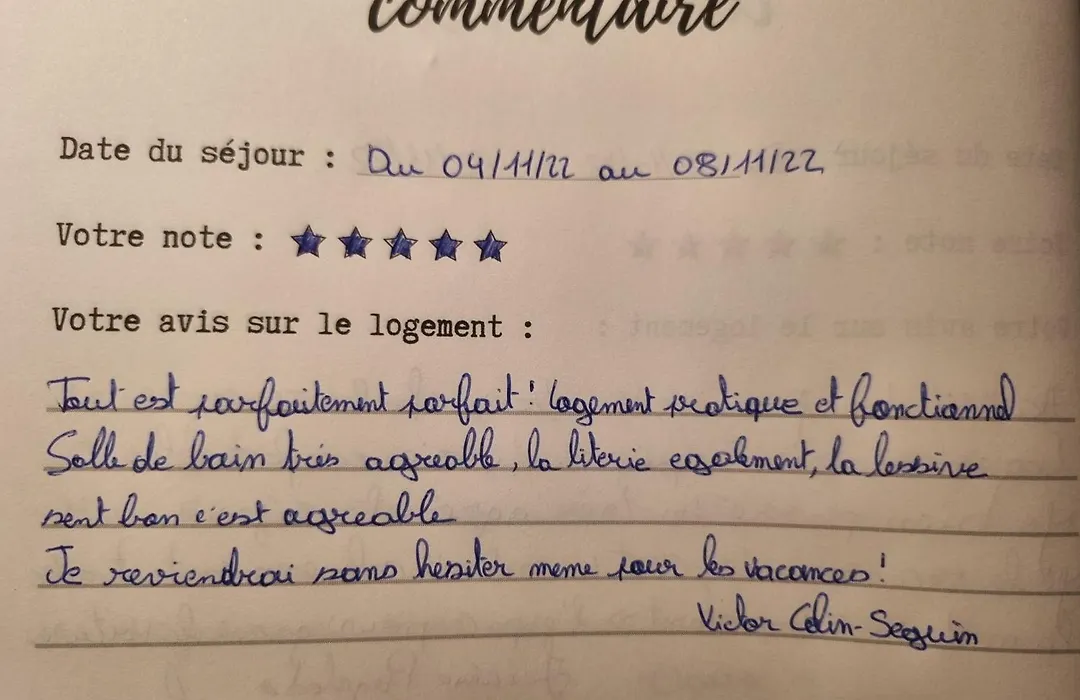 commentaire
Date du séjour : Du 04/11/22 au 08/11/22
Votre note : ★★★★★
Votre avis sur le logement :
Tout est parfaitement parfait ! logement pratique et fonctionnel
Salle de bain très agreable, la literie egalement, la lessive
sent bon c'est agreable
Je reviendrai sans hesiter meme pour les vacances !
Victor Colin-Seguin